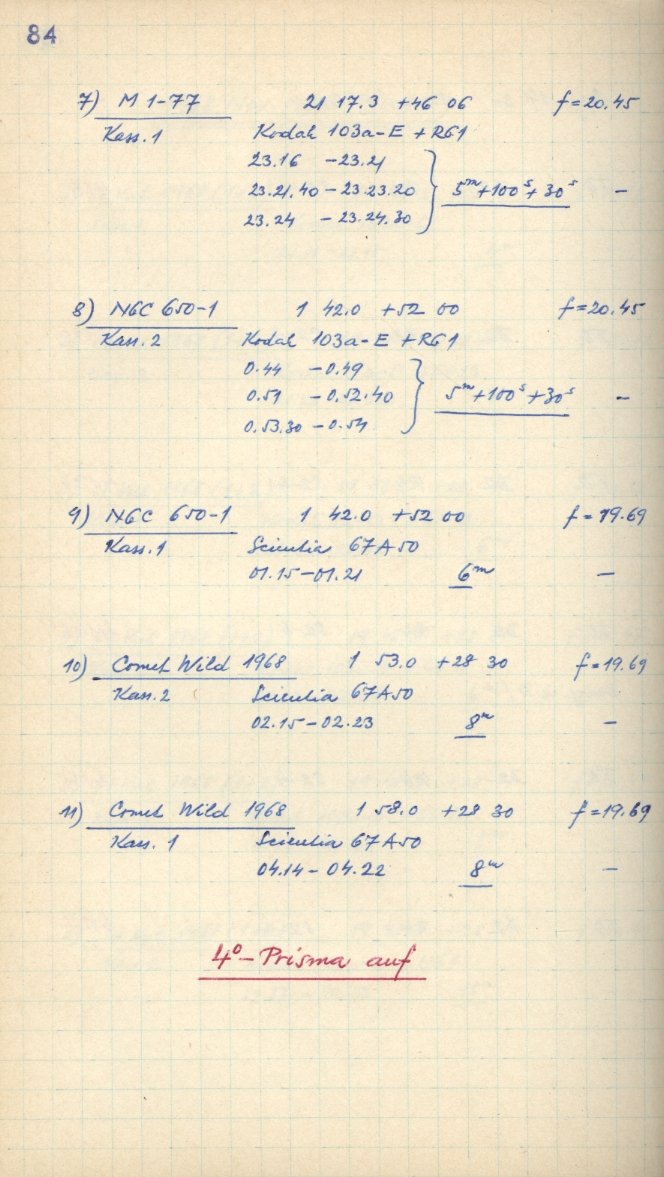 84
7) M 1-77 21 17.3 +46 06 f=20.45
Kass. 1 Kodak 103a-E + RG1
23.16 -23.21
23.21.40 - 23.23.20 5m+100s+30s -
23.24 - 23.24.30
8) NGC 650-1 1 42.0 +52 00 f=20.45
Kass. 2 Kodak 103a-E + RG1
0.44 - 0.49
0.51 - 0.52.40 5m+100s+30s -
0.53.30 - 0.54
9) NGC 650-1 1 42.0 +52 00 f=19.69
Kass. 1 Scientia 67A50
01.15-01.21 6m -
10) Comet Wild 1968 1 53.0 +28 30 f=19.69
Kass. 2 Scientia 67A50
02.15-02.23 8m -
11) Comet Wild 1968 1 58.0 +28 30 f=19.69
Kass. 1 Scientia 67A50
04.14-04.22 8m -
4°-Prisma auf